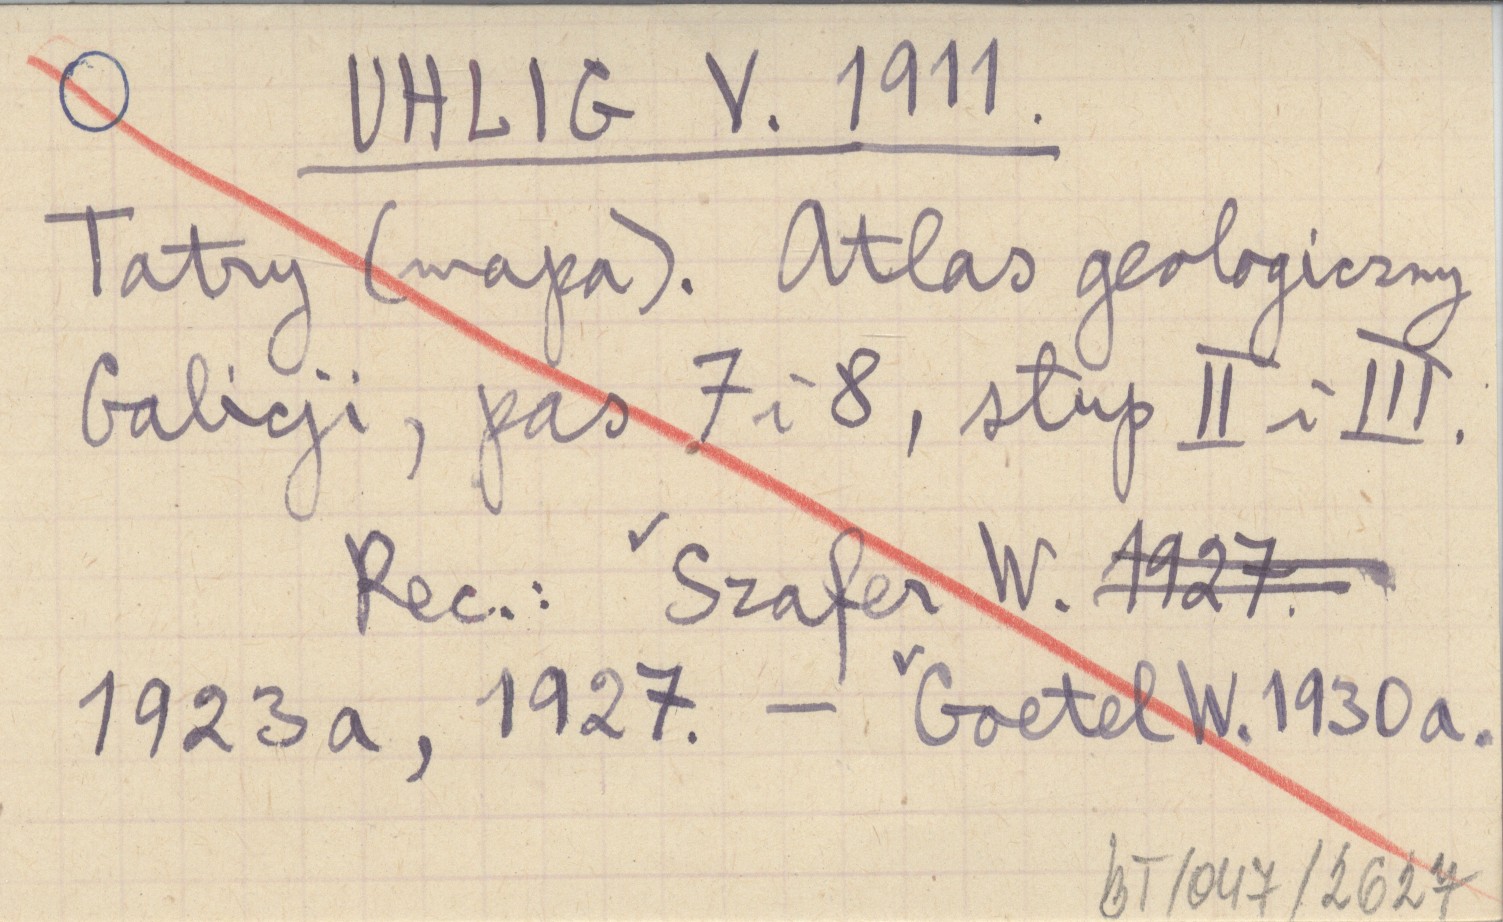 UHLIG V. 1911.
Tatry (mapa). Atlas geologiczny
Galicji, pas 7 i 8, słup II i III.
Rec.: ✓Szafer W. 1927.
1923a, 1927. — ✓Goetel W. 1930a.
bT/047/2627